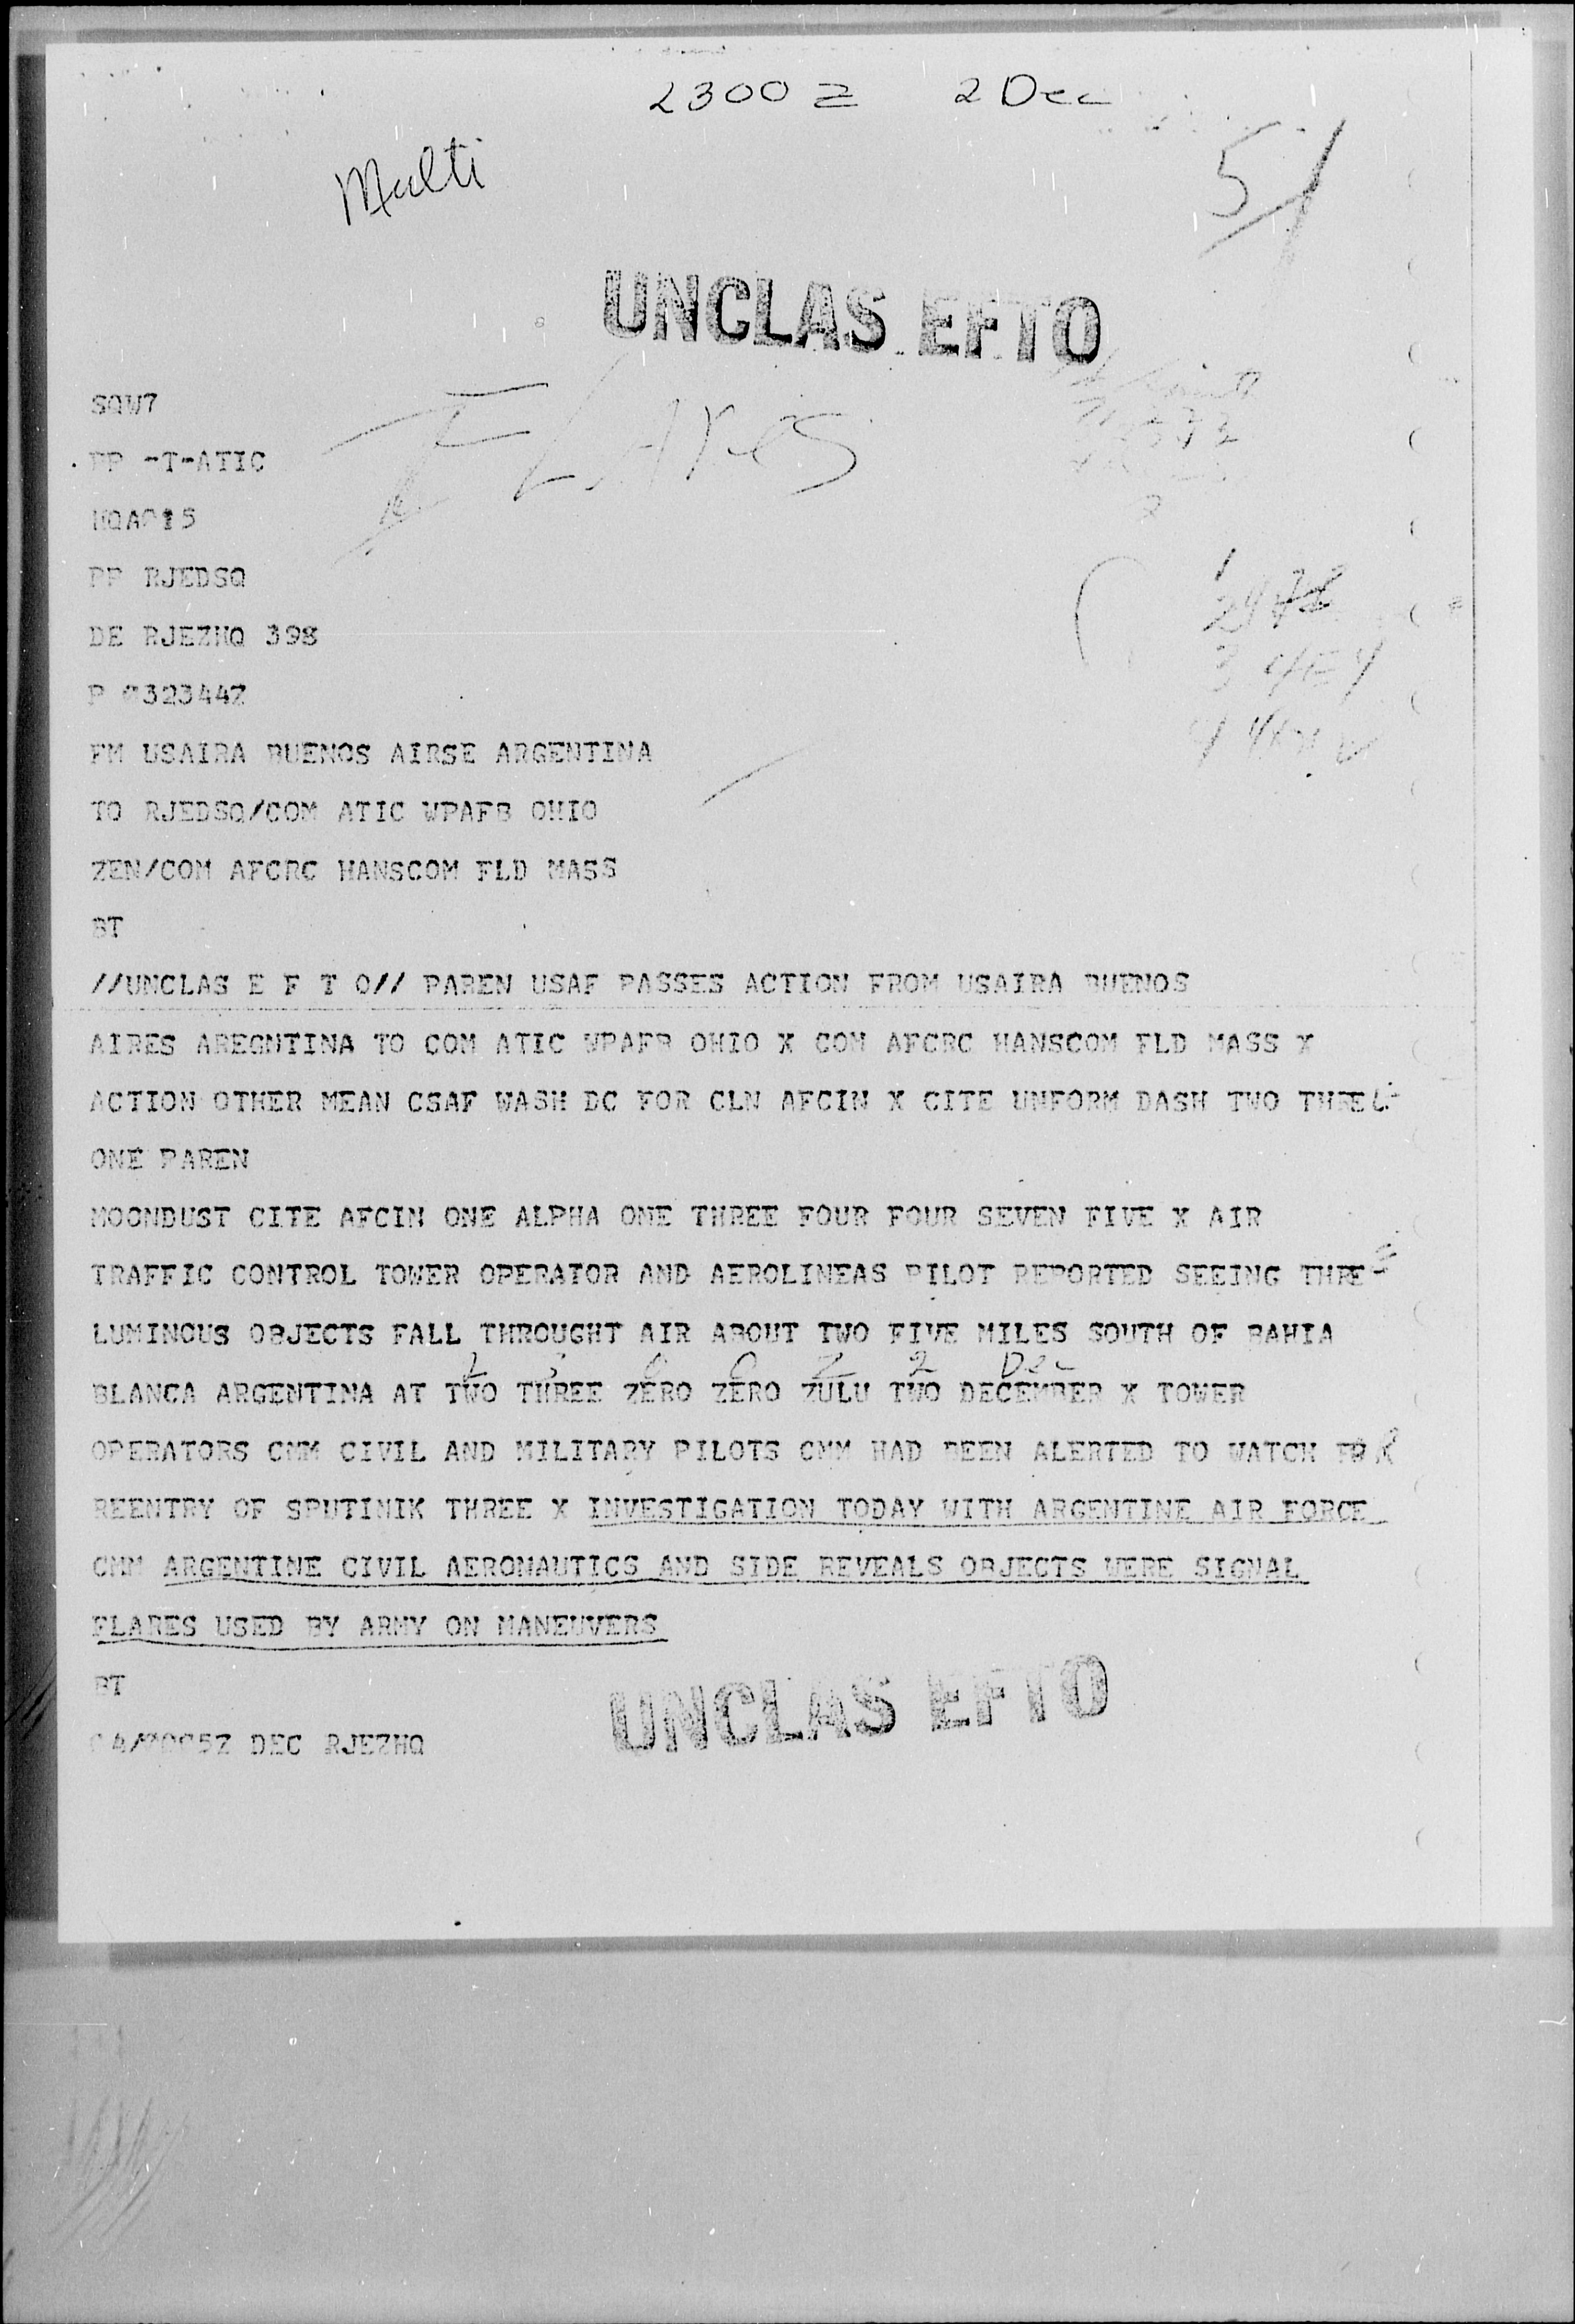 2300 Z 2 Dec
Multi
5
UNCLAS EFTO
SQW7
FLARES
PP -T-ATIC
HQA015
PP RJEDSQ
DE RJEZHQ 398
P 032344Z
FM USAIRA BUENOS AIRSE ARGENTINA
TO RJEDSQ/COM ATIC WPAFB OHIO
ZEN/COM AFCRC HANSCOM FLD MASS
BT
//UNCLAS E F T O// PAREN USAF PASSES ACTION FROM USAIRA BUENOS
AIRES AREGNTINA TO COM ATIC WPAFB OHIO X COM AFCRC HANSCOM FLD MASS X
ACTION OTHER MEAN CSAF WASH DC FOR CLN AFCIN X CITE UNFORM DASH TWO THREE
ONE PAREN
MOONDUST CITE AFCIN ONE ALPHA ONE THREE FOUR FOUR SEVEN FIVE X AIR
TRAFFIC CONTROL TOWER OPERATOR AND AEROLINEAS PILOT REPORTED SEEING THREE
LUMINOUS OBJECTS FALL THROUGHT AIR ABOUT TWO FIVE MILES SOUTH OF BAHIA
2 3 0 0 Z 2 Dec
BLANCA ARGENTINA AT TWO THREE ZERO ZERO ZULU TWO DECEMBER X TOWER
OPERATORS CMM CIVIL AND MILITARY PILOTS CMM HAD BEEN ALERTED TO WATCH FOR
REENTRY OF SPUTINIK THREE X INVESTIGATION TODAY WITH ARGENTINE AIR FORCE
CMM ARGENTINE CIVIL AERONAUTICS AND SIDE REVEALS OBJECTS WERE SIGNAL
FLARES USED BY ARMY ON MANEUVERS
BT
UNCLAS EFTO
04/0005Z DEC RJEZHQ